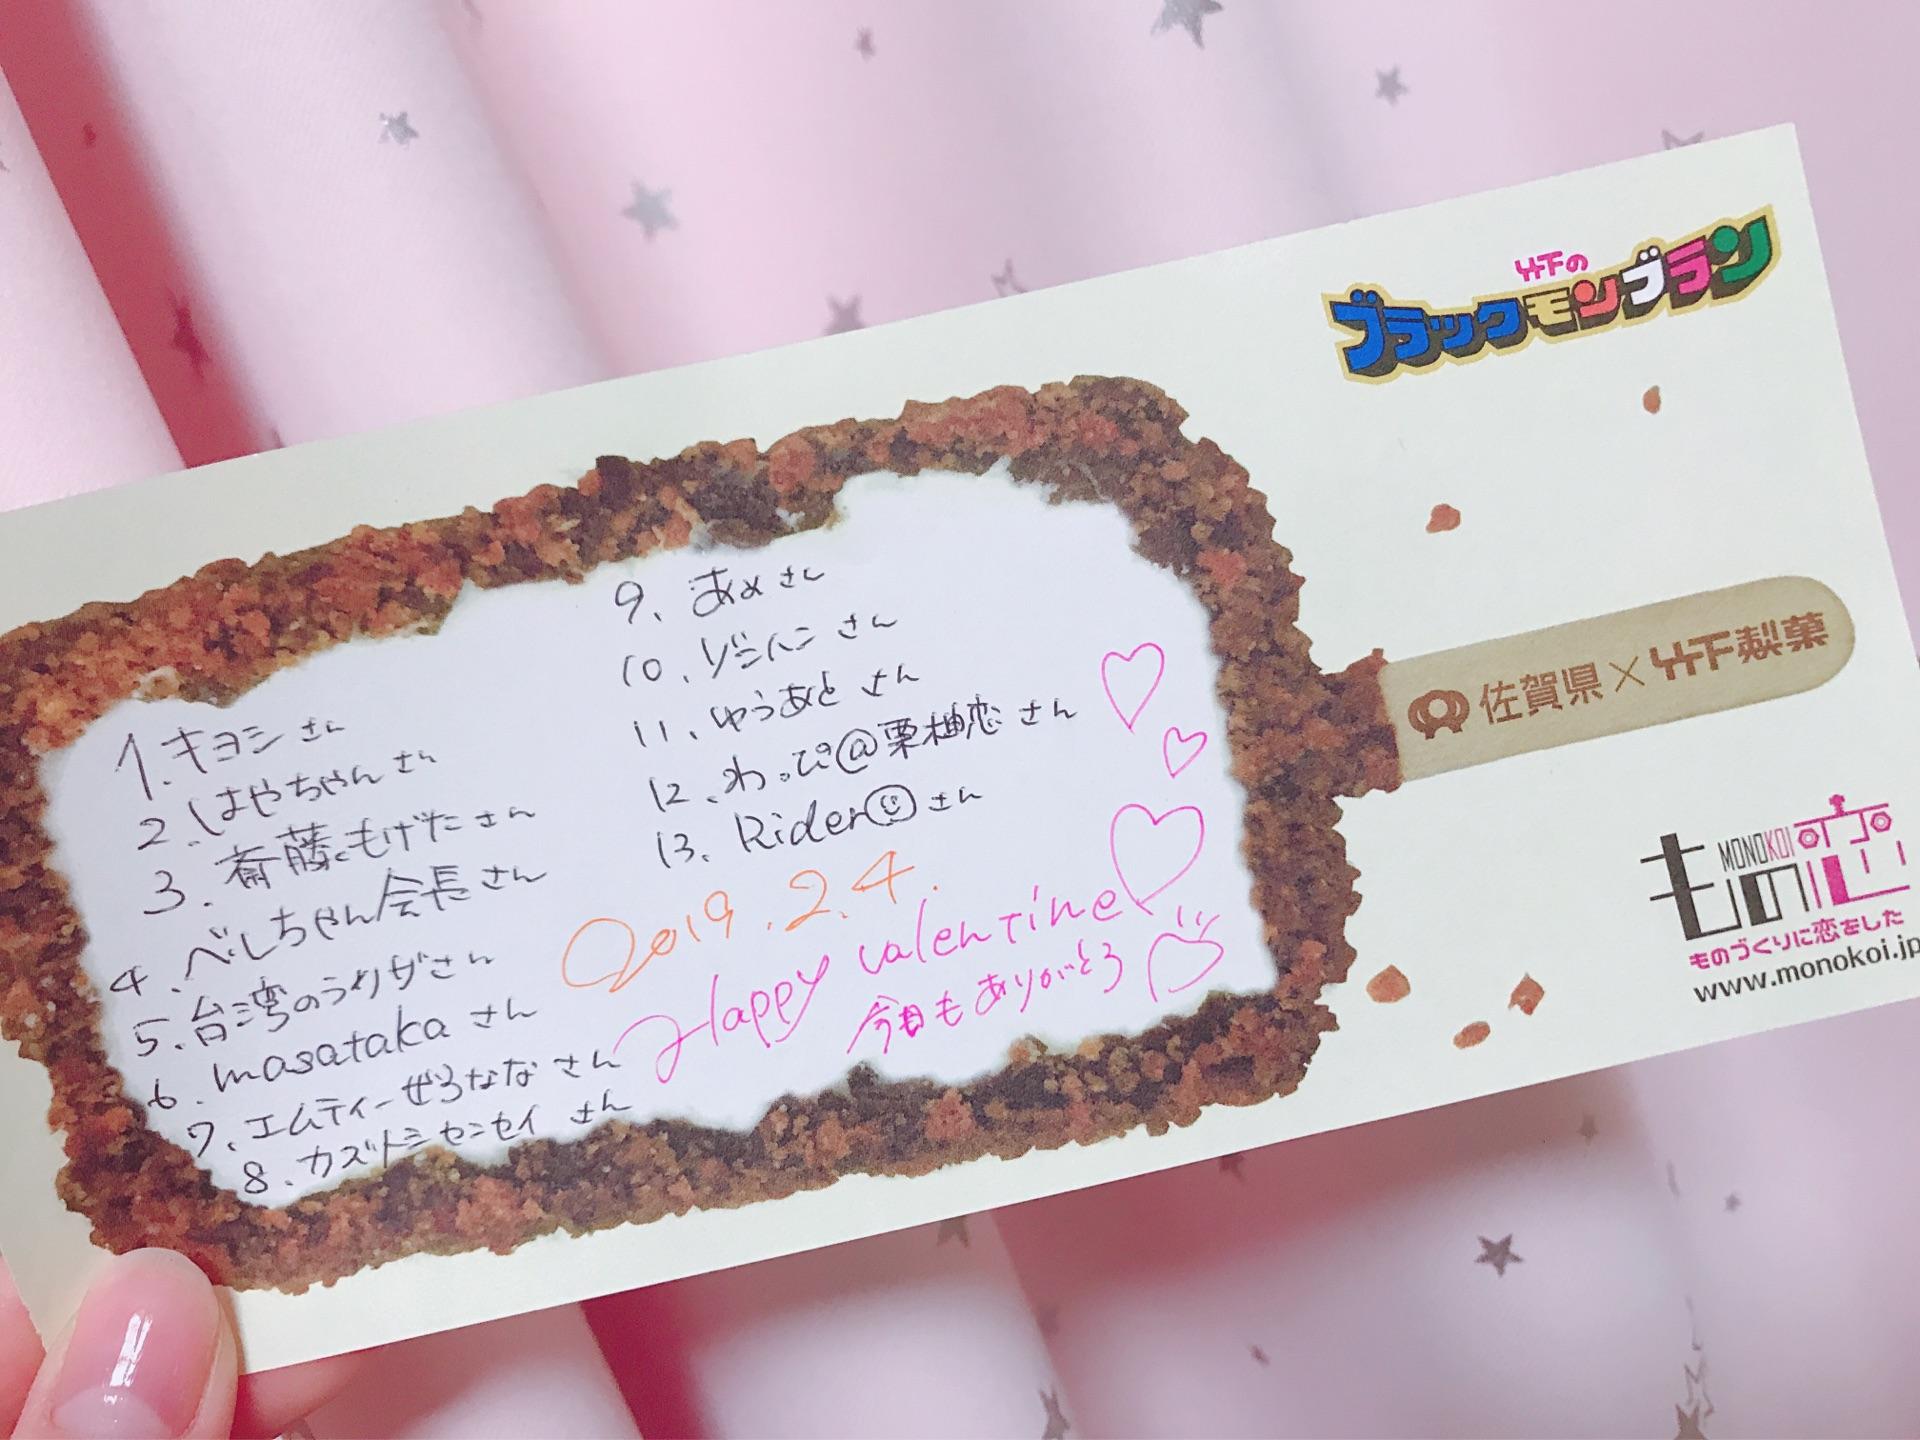 1. キヨシさん
2. はやちゃんさん
3. 斎藤もげたさん
4. べしちゃん会長さん
5. 台湾のうりがさん
6. masatakaさん
7. エムティーぜろななさん
8. カズトシセンセイさん
9. あめさん
10. ゾニハンさん
11. ゆうあとさん
12. わっぴ@栗柚恋さん
13. Riderさん
2019.2.4.
Happy valentine
今日もありがとう
竹下の
ブラックモンブラン
佐賀県×竹下製菓
MONOKOI
もの恋
ものづくりに恋をした
www.monokoi.jp